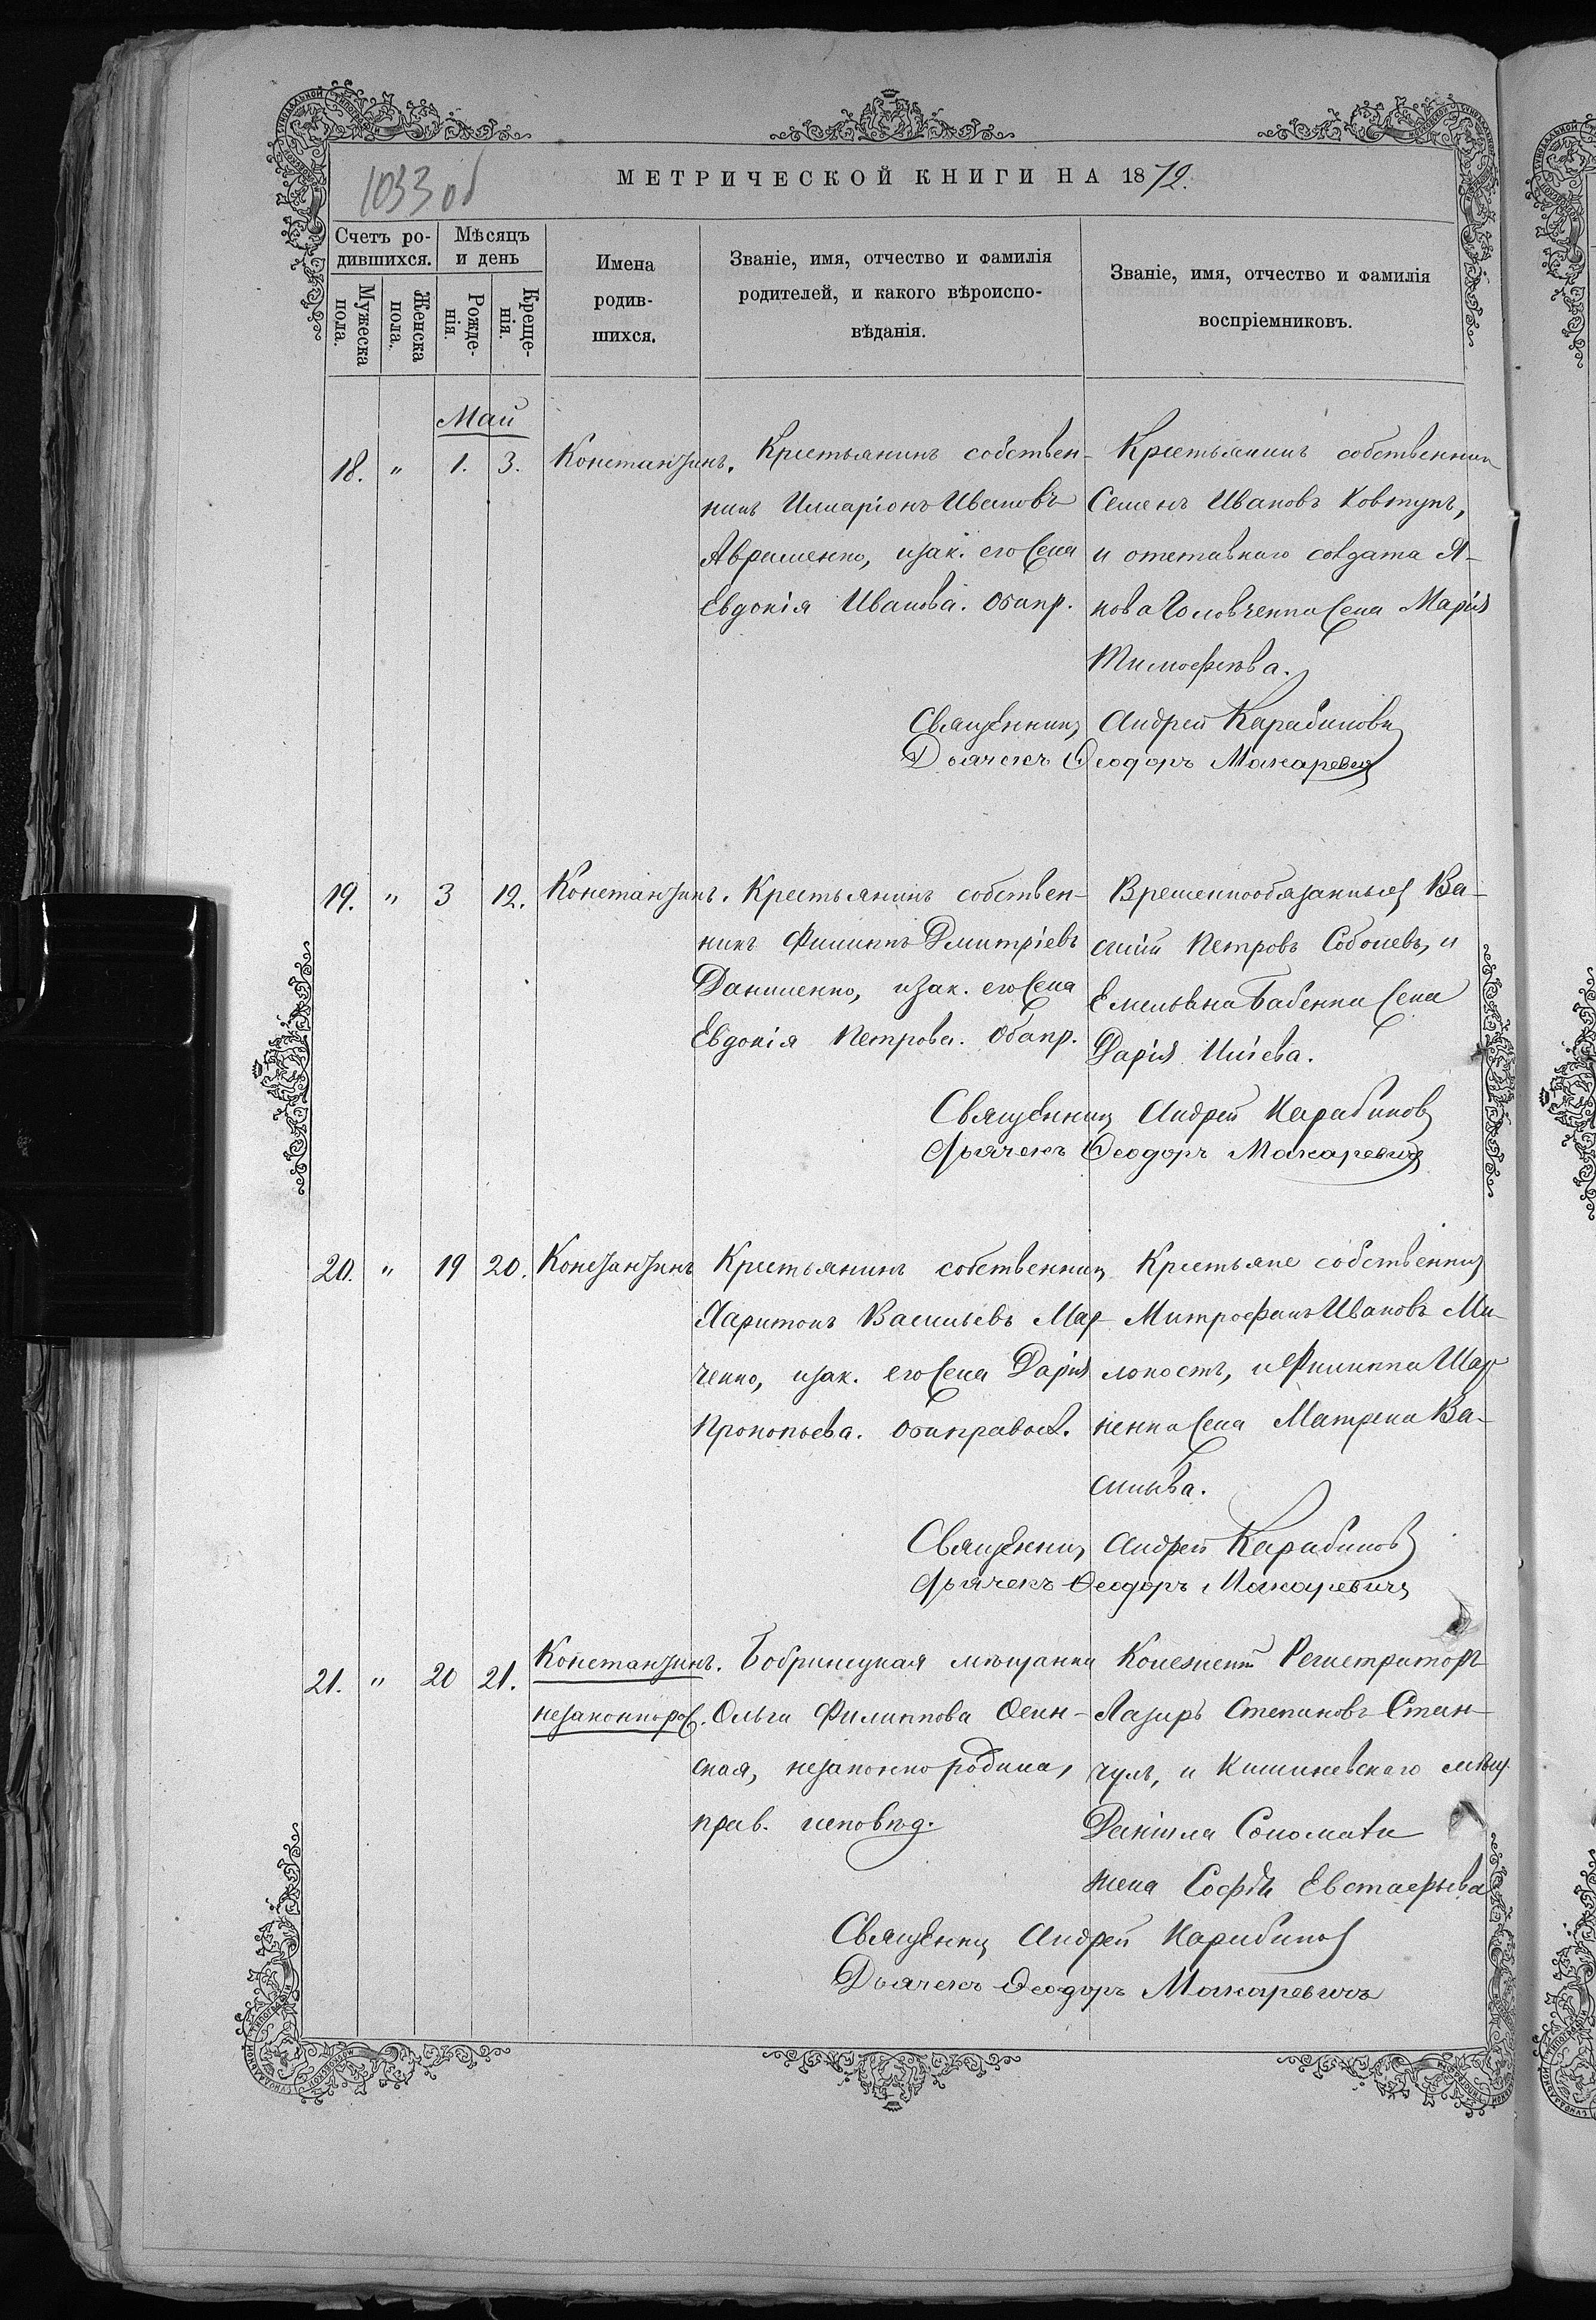 1033 об
МЕТРИЧЕСКОЙ КНИГИ НА 1872.
Счетъ ро-
дившихся.
Мѣсяцъ
и день
Мужеска
пола.
Женска
пола.
Рожде-
нія.
Креще-
нія.
Имена
родив-
шихся.
Званіе, имя, отчество и фамилія
родителей, и какого вѣроиспо-
вѣданія.
Званіе, имя, отчество и фамилія
воспріемниковъ.
Май
18. " 1. 3. Константинъ.
Крестьянинъ собствен-
никъ Илларіонъ Ивановъ
Авраменко, и зак. его жена
Евдокія Иванова. Оба пр.
Крестьянинъ собственник
Семенъ Ивановъ Ковтунъ,
и отставнаго солдата Я-
кова Головченка жена Марія
Тимофеева.
Священникъ Андрей Карабиновъ
Дьячекъ Ѳеодоръ Макаревич
19. " 3 12. Константинъ.
Крестьянинъ собствен-
никъ Филиппъ Дмитріевъ
Даниленко, и зак. его жена
Евдокія Петрова. Оба пр.
Временнообязанный Ва-
силій Петровъ Соболевъ, и
Емельяна Бабенка жена
Дарія Иліева.
Священникъ Андрей Карабиновъ
Дьячекъ Ѳеодоръ Макаревич
20. " 19 20. Константинъ
Крестьянинъ собственникъ
Харитонъ Васильевъ Мар-
ченко, и зак. его жена Дарія
Прокопьева. Оба правосл.
Крестьяне собственник
Митрофанъ Ивановъ Ми-
лопостъ, и Филиппа Шар
ненка жена Матрена Ва-
сильева.
Священникъ Андрей Карабиновъ
Дьячекъ Ѳеодоръ Макаревичъ
21. " 20 21. Константинъ.
незаконнорож.
Бобринецкая мѣщанка
Ольга Филиппова
ская, незаконно родила,
прав. исповѣд.
Колежскій Регистраторъ
Лазарь Степановъ Стан-
чулъ, и Кишиневскаго мѣщ.
Даніила
жена Софія Евстафьева
Священникъ Андрей Карабинов
Дьячекъ Ѳеодоръ Макаревичъ